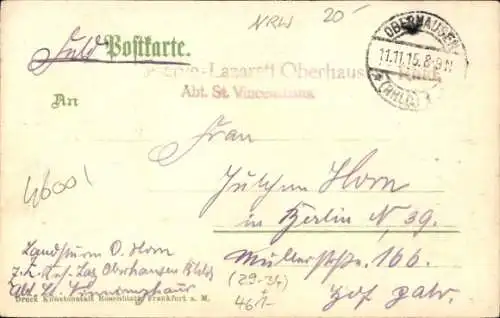 NRW 20-
Feld Postkarte.
Reserve-Lazarett Oberhausen
Abt. St. Vincenzhaus
OBERHAUSEN
11.11.15. 8-9 N
(RHLD.)
An
Frau
Julchen Horn
in Berlin N, 39.
Müllerstr. 166.
Hof part.
46001
Landsturm O. Horn
z. Z. Res. Laz. Oberhausen Rhld.
Abt. St. Vincenzhaus
(29-34)
461-
Druck Kunstanstalt Rosenblatt, Frankfurt a. M.